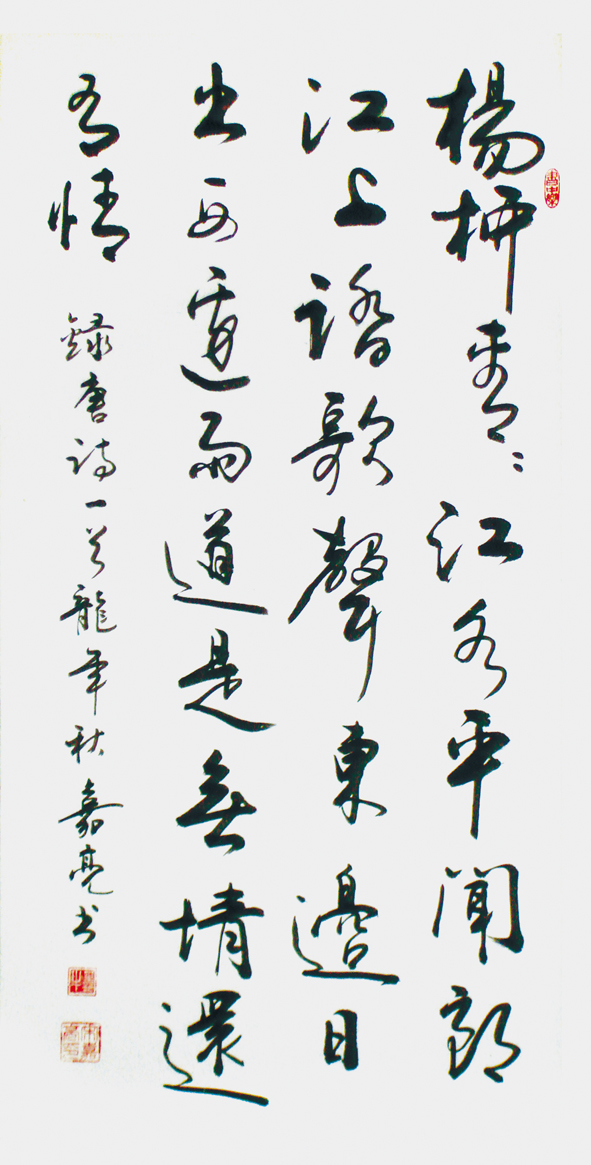 楊柳青〻江水平聞郎
江上踏歌聲東邊日
出西邊雨道是無情還
有情
錄唐詩一首龍年秋嘉亮书